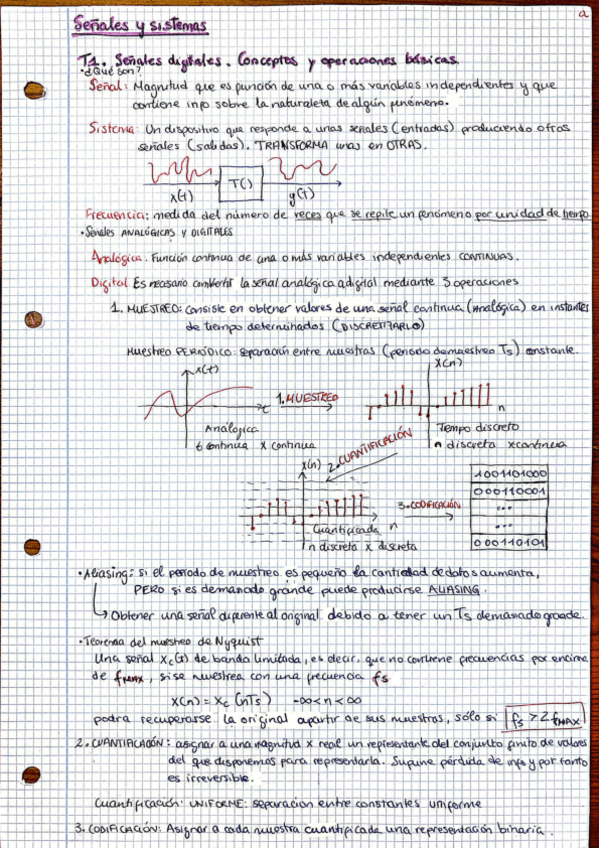 a
Señales y sistemas
T1. Señales digitales. Conceptos y operaciones básicas.
• ¿Qué son?
Señal: Magnitud que es función de una o más variables independientes y que
contiene info sobre la naturaleza de algún fenómeno.
Sistema: Un dispositivo que responde a unas señales (entradas) produciendo otras
señales (salidas). TRANSFORMA unas en OTRAS.
x(t) T() y(t)
Frecuencia: medida del número de veces que se repite un fenómeno por unidad de tiempo
• Señales ANALÓGICAS y DIGITALES
Analógica: Función continua de una o más variables independientes CONTINUAS.
Digital Es necesario convertir la señal analógica a digital mediante 3 operaciones
1. MUESTREO: consiste en obtener valores de una señal continua (analógica) en instantes
de tiempo determinados (DISCRETIZARLO)
Muestreo PERIÓDICO: separación entre muestras (periodo de muestreo Ts) constante.
x(t) x(n)
1. MUESTREO
t n
Analógica Tiempo discreto
t continua x continua n discreta x continua
x(n) 2. CUANTIFICACIÓN
1001101000
000110001
3. CODIFICACIÓN ...
Cuantificada n ...
n discreta x discreta 000110101
• Aliasing: si el periodo de muestreo es pequeño la cantidad de datos aumenta,
PERO si es demasiado grande puede producirse ALIASING.
→ Obtener una señal diferente al original debido a tener un Ts demasiado grande.
• Teorema del muestreo de Nyquist
Una señal Xc(t) de banda limitada, es decir, que no contiene frecuencias por encima
de fMAX, si se muestrea con una frecuencia fs
x(n) = xc (nTs) -∞<n<∞
podra recuperarse la original a partir de sus muestras, sólo si fs > 2 fMAX
2. CUANTIFICACIÓN: asignar a una magnitud x real un representante del conjunto finito de valores
del que disponemos para representarla. Supone pérdida de info y por tanto
es irreversible.
Cuantificación UNIFORME: separacion entre constantes uniforme
3. CODIFICACIÓN: Asignar a cada muestra cuantificada una representación binaria.